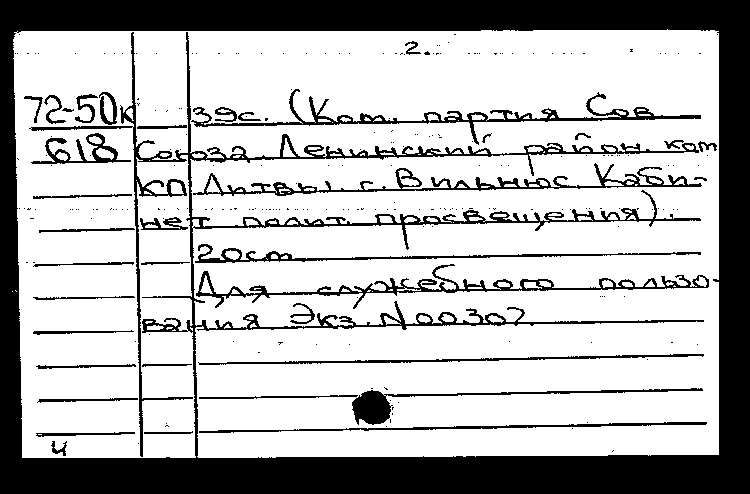 2.
72-50к 39с. (Ком. партия Сов.
618 Союза. Ленинский район. ком.
КП Литвы. г. Вильнюс. Каби-
нет полит. просвещения).
20 cm.
Для служебного пользо-
вания Экз. N 00307.
ч